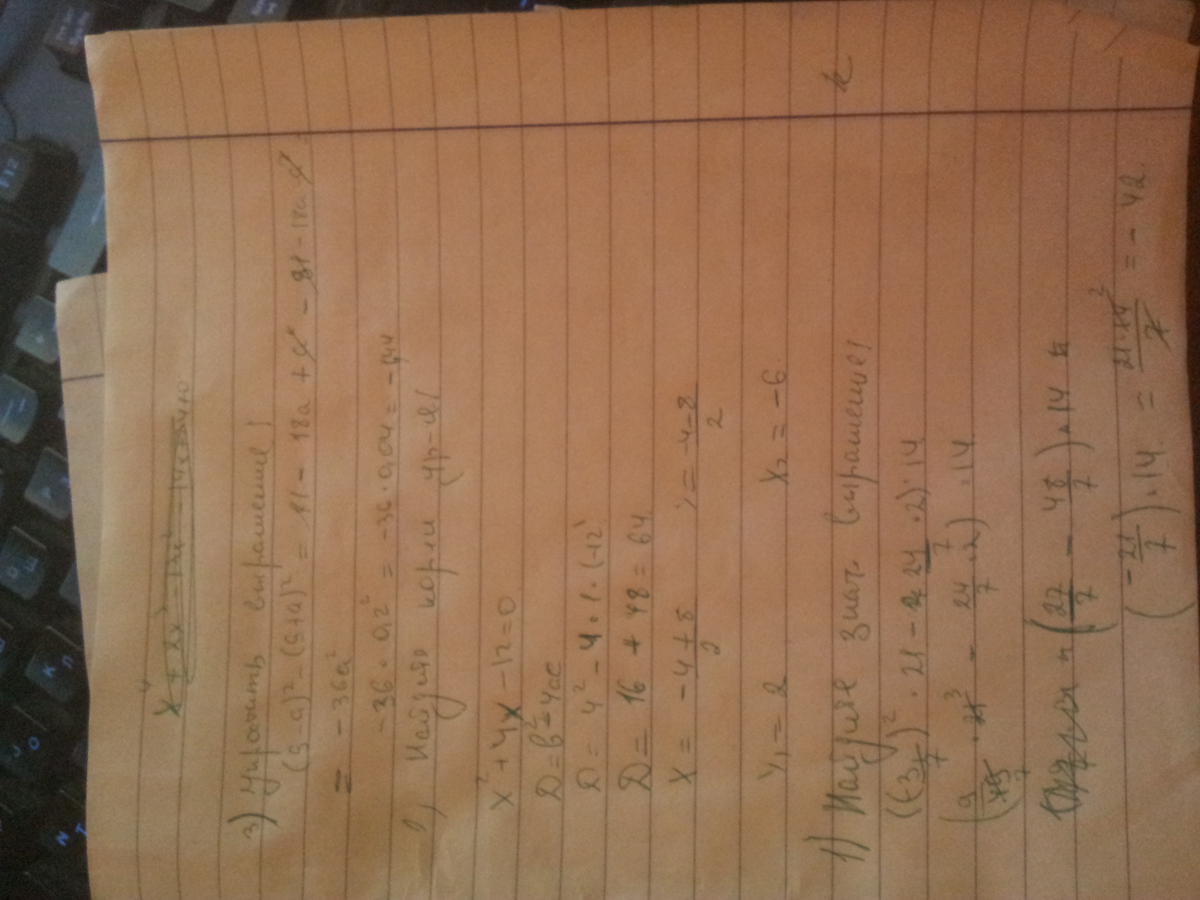 3) Упростить выражение!
(9-a)² - (9+a)² = 11 - 18a + a² - 81 - 18a a²
= - 36a²
-36 · 0,2² = -36 · 0,04 = -1,44
2) Найдите корни ур-е!
x² + 4x - 12 = 0
D = b² - 4ac
D = 4² - 4 · 1 · (-12)
D = 16 + 48 = 64
x = -4 + 8 / 2 = -4 - 8 / 2
x₁ = 2 x₂ = -6
1) Найдите знач. выражение!
· 21 - 24/7 · 2) · 14
- 24/7 · 2) · 14
(27/7 - 48/7) · 14
(-21/7) · 14 = 21·14²/7 = -42